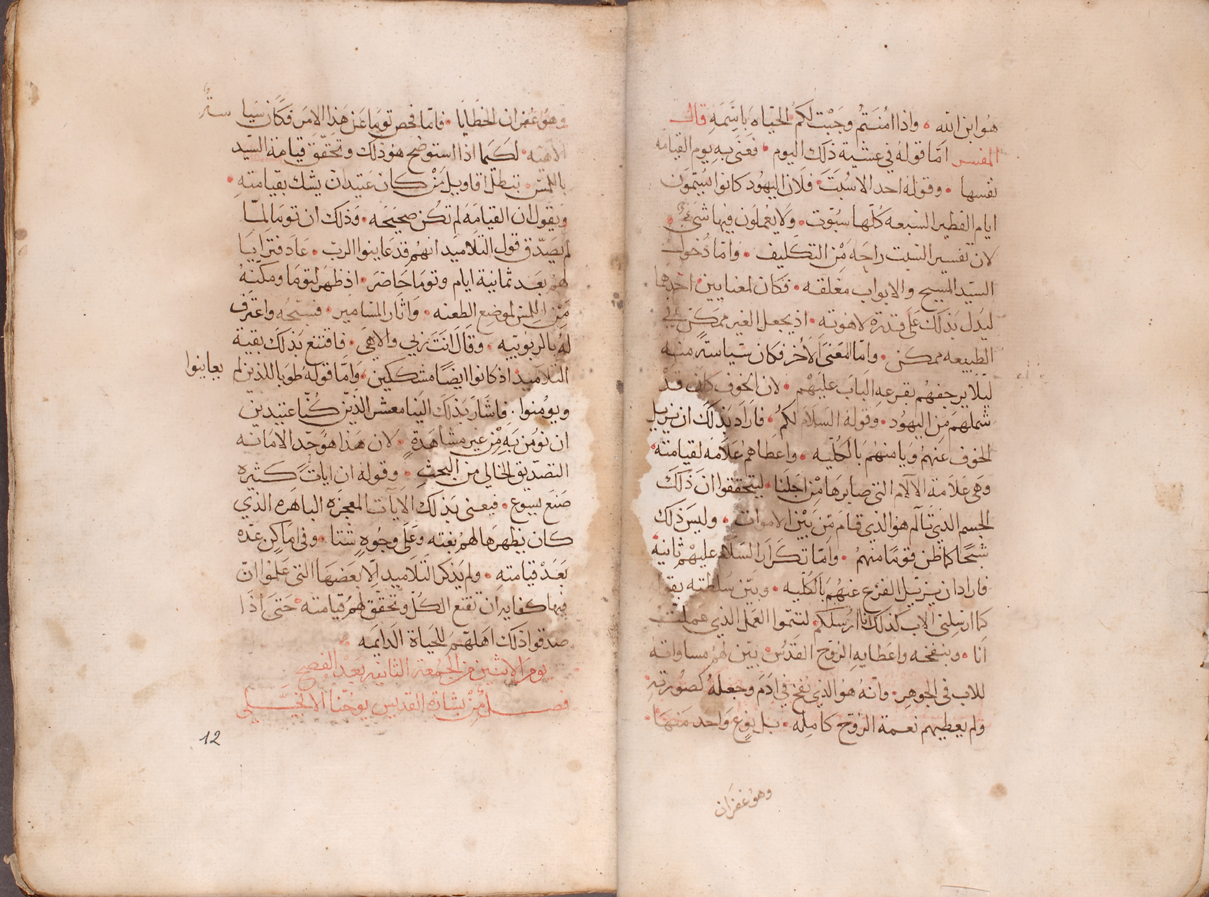 هو ابن الله • واذا امنتم وجبت لكم الحياه باسمه قال
المفسر اما قوله في عشية ذلك اليوم • فعنى به يوم القيامه
نفسها • وقوله احد الاسبت • فلان اليهود كانوا يسمون
ايام الفطير السبعه كلها سبوت • ولا يعملون فيها شي •
لان تفسير السبت راحه من التكليف • واما دخول
السيد المسيح والابواب مغلقه • فكان لمعنايين • احدها
ليدل بذلك على قدرة لاهوته • اذ يجعل الغير ممكن في
الطبيعه ممكن • واما المعنى الاخر فكان سياسة منه
ليلا يرجفهم بقرعه الباب عليهم • لان الخوف كان قد
شملهم من اليهود • وقوله السلام لكم • فاراد بذلك ان يزيل
الخوف عنهم ويامنهم بالكليه • واعطاهم علامه لقيامته •
وهي علامة الالام التي صابرها من اجلنا • ليتحققوا ان ذلك
الجسم الذي تالم هو الذي قام من بين الاموات • وليس ذلك
شبحا كما ظن قوما منهم • واما تكرار السلام عليهم ثانية
فاراد ان يزيل الفزع عنهم بالكليه • وبين سلطته بقو
كما ارسلني الاب كذلك انا ارسلكم • لتتموا العمل الذي عملت
انا • وبنفخه واعطايه الروح القدس • بين لهم مساواته
للاب في الجوهر • وانه هو الذي نفخ في ادم وجعله كصورته
ولم يعطيهم نعمة الروح كامله • بل نوع واحد منها •
وهو غفران
وهو غفران الخطايا • فاما فحص توما عن هذا الامر فكان سياسة
الاهية • لكيما اذا استوضح هو ذلك وتحقق قيامة السيد
باللمس • تبطل اقاويل من كان عتيد ان يشك بقيامته •
ويقول ان القيامه لم تكن صحيحه • وذلك ان توما لما
لم يصدق قول التلاميد انهم قد عاينوا الرب • عاد فترايا
لهم بعد ثمانية ايام وتوما حاضر • اذ ظهر لتوما ومكنه
من اللمس لموضع الطعنه • واثار المسامير • فسبحه واعترف
له بالربوبيه • وقال انت ربي والاهي • فاقتنع بذلك بقية
التلاميد اذ كانوا ايضا متشككين • واما قوله طوبا للذين لم يعاينوا
ويومنوا • فاشار بذلك الينا معشر الذين كنا عتيدين
ان نومن به من غير مشاهدة • لان هذا هو حد الامانه
التصديق الخالي من البحث • وقوله ان ايات كثيره
صنع يسوع • فيعني بذلك الايات المعجزه الباهره الذي
كان يظهرها لهم بغته وعلى وجوه شتا • وفي اماكن عده
بعد قيامته • ولم يذكر التلاميد الا بعضها التي علموا ان
فيها كفايه ان تقنع الكل وتحقق لهم قيامته • حتى اذا
صدقوا ذلك اهلهم للحياة الدايمه •
يوم الاثنين من الجمعة الثانيه بعد الفصح
فصل من بشارة القديس يوحنا الانجيلي
12